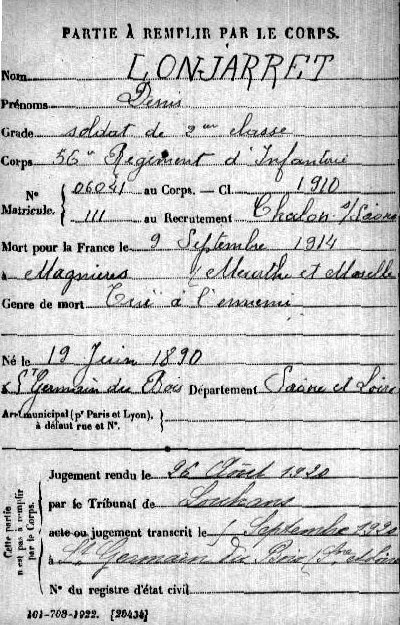 PARTIE À REMPLIR PAR LE CORPS.
Nom LONJARRET
Prénoms Denis
Grade soldat de 2me classe
Corps 56e Régiment d'Infanterie
Nº Matricule. 06041 au Corps. — Cl. 1910
111 au Recrutement Chalon s/Saône
Mort pour la France le 9 Septembre 1914
à Magnières Meurthe et Moselle
Genre de mort Tué à l'ennemi
Né le 19 Juin 1890
à St Germain du Bois Département Saône et Loire
Arrt municipal (pr Paris et Lyon), à défaut rue et Nº.
Cette partie n'est pas à remplir par le Corps.
Jugement rendu le 26 Août 1920
par le Tribunal de Louhans
acte ou jugement transcrit le Septembre 1920
à St Germain du Bois
Nº du registre d'état civil
101-708-1922. [26434]